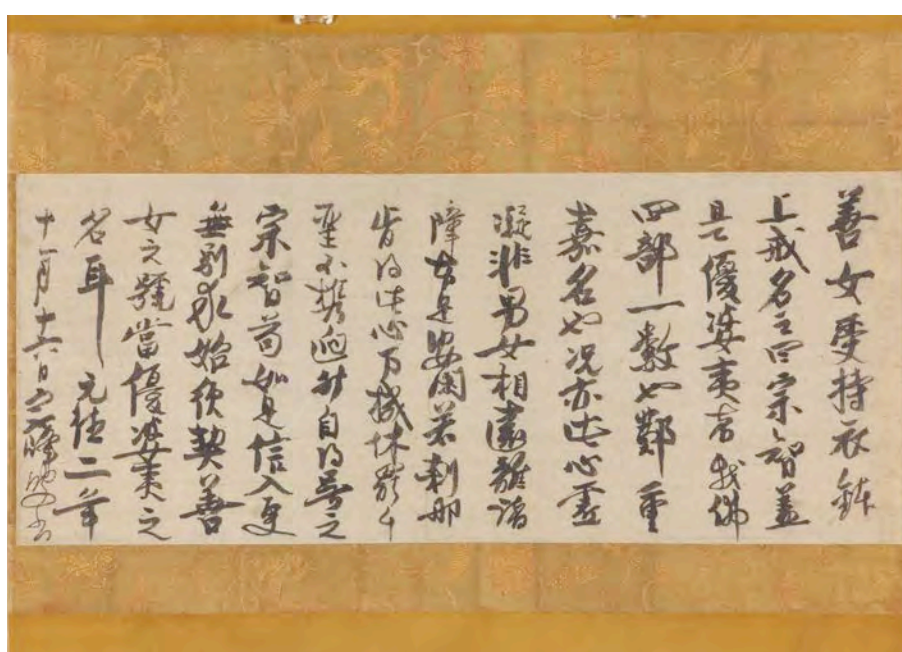 善女受持衣鉢
上戒名之曰宗智蓋
是優婆夷者我佛
四部一數也鄭重
嘉名也况亦此心靈
凝非男女相遠離諸
障方是安閑若刹那
皆得此心万機休罷千
聖不携迥然自得普之
宗智苟如是信入更
無別求始須契善
女之號當優婆夷之
名耳元徳二年
十一月十六日